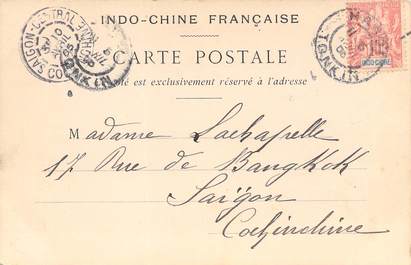 INDO-CHINE FRANÇAISE
CARTE POSTALE
côté est exclusivement réservé à l'adresse
SAIGON-CENTRAL
TONKIN
TONKIN
10
INDO-CHINE
Madame Lachapelle
17 Rue de Bangkok
Saïgon
Cochinchine